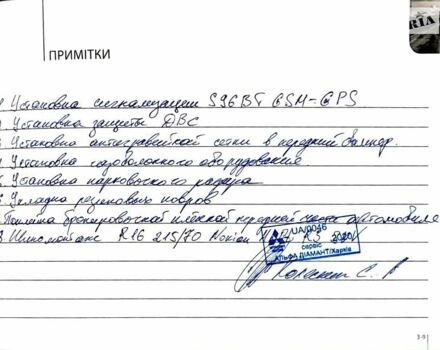 ПРИМІТКИ
Установка сигнализации S96BT GSM-GPS
Установка защиты ДВС
Установка антигравейной сетки в передний бампер.
Установка газобалонного оборудования
Установка парковочного радара
Укладка резиновых ковров
бронировочной плёнкой передней части автомобиля
Шиномонтаж R16 215/70 Nokian
UA/0046
сервіс
АЛЬФА ДІАМАНТ/Харків
3-9